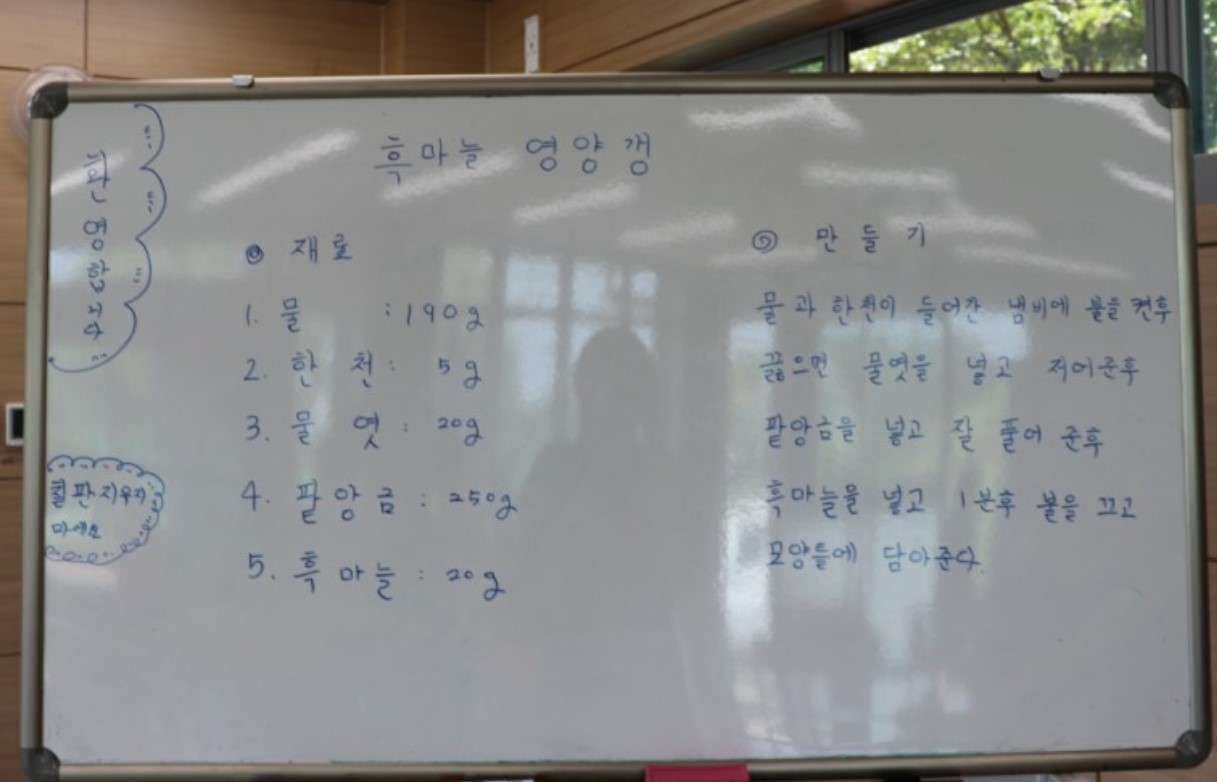 흑마늘 영양갱
한영합자
칠판지우지
마세요
◎ 재료
1. 물 : 190g
2. 한천 : 5g
3. 물엿 : 20g
4. 팥앙금 : 250g
5. 흑마늘 : 20g
◎ 만들기
물과 한천이 들어간 냄비에 불을 켠후
끓으면 물엿을 넣고 저어준후
팥앙금을 넣고 잘 풀어 준후
흑마늘물 넣고 1분후 불을 끄고
모양틀에 담아준다.